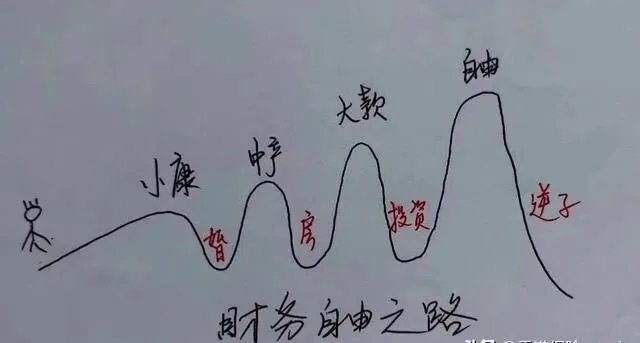 自由
大款
中产
小康
婚
房
投资
逆子
财务自由之路